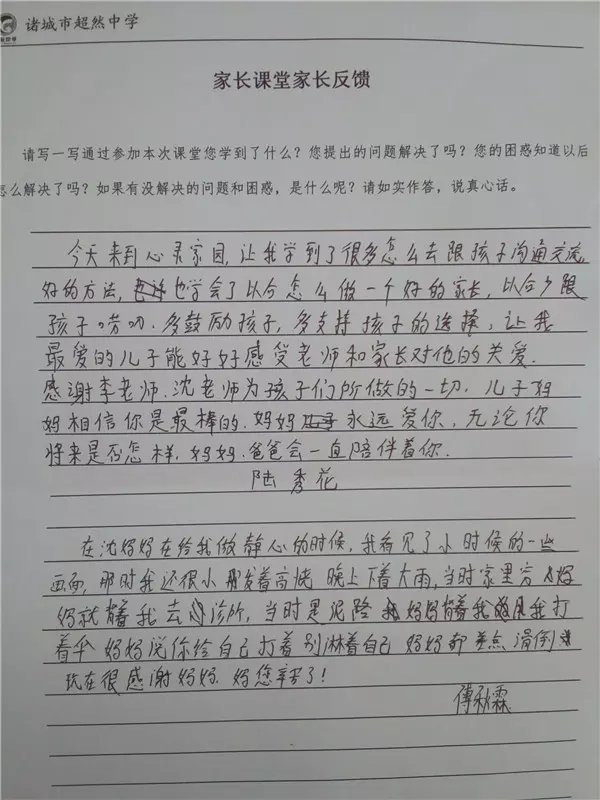 诸城市超然中学
家长课堂家长反馈
请写一写通过参加本次课堂您学到了什么？您提出的问题解决了吗？您的困惑知道以后
怎么解决了吗？如果有没解决的问题和困惑，是什么呢？请如实作答，说真心话。
今天来到心灵家园，让我学到了很多怎么去跟孩子沟通交流
好的方法，也学会了以今怎么做一个好的家长，以今少跟
孩子唠叨．多鼓励孩子，多支持孩子的选择，让我
最爱的儿子能好好感受老师和家长对他的关爱．
感谢李老师．沈老师为孩子们所做的一切．儿子妈
妈相信你是最棒的．妈妈永远爱你，无论你
将来是否怎样，妈妈．爸爸会一直陪伴着你．
陆秀花
在沈妈妈在给我做静心的时候，我看见了小时候的一些
画面，那时我还很小发着高烧 晚上下着大雨，当时家里穷 妈
妈就背着我去诊所，当时是泥路 妈妈背着我 我打
着伞 妈妈说你给自己打着 别淋着自己 妈妈都差点滑倒
现在很感谢妈妈．妈您辛苦了！
傅秋霖